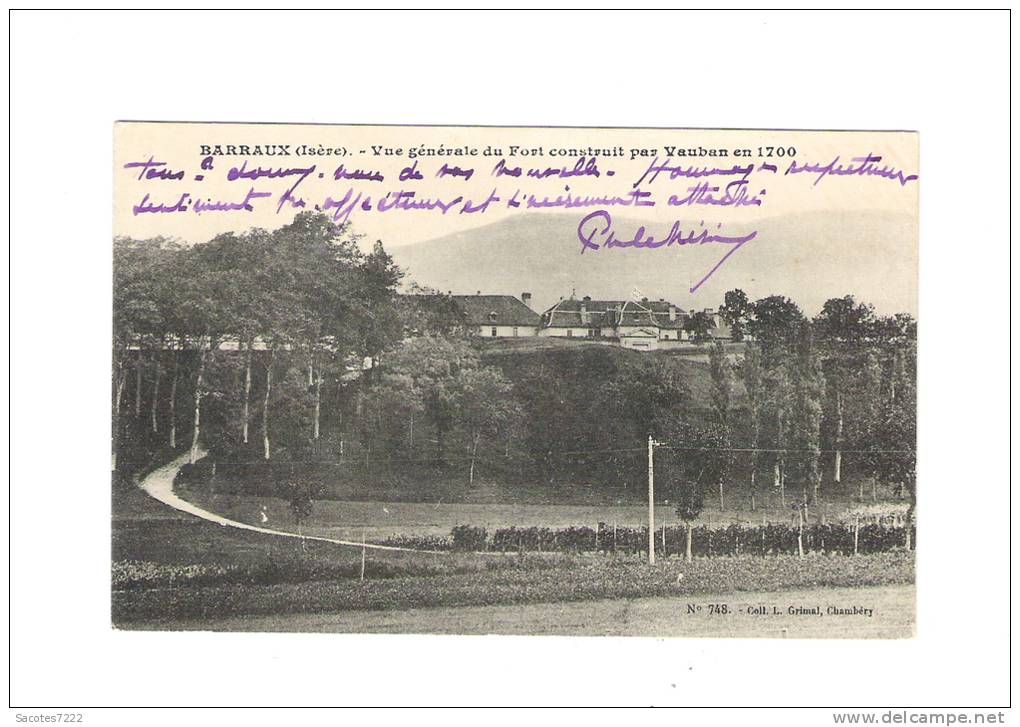 BARRAUX (Isère). - Vue générale du Fort construit par Vauban en 1700
de vos nouvelles. Hommages respectueux
sentiments affectueux et sincèrement attachés
Nº 748. - Coll. L. Grimal, Chambéry
Sacotes7222
www.delcampe.net